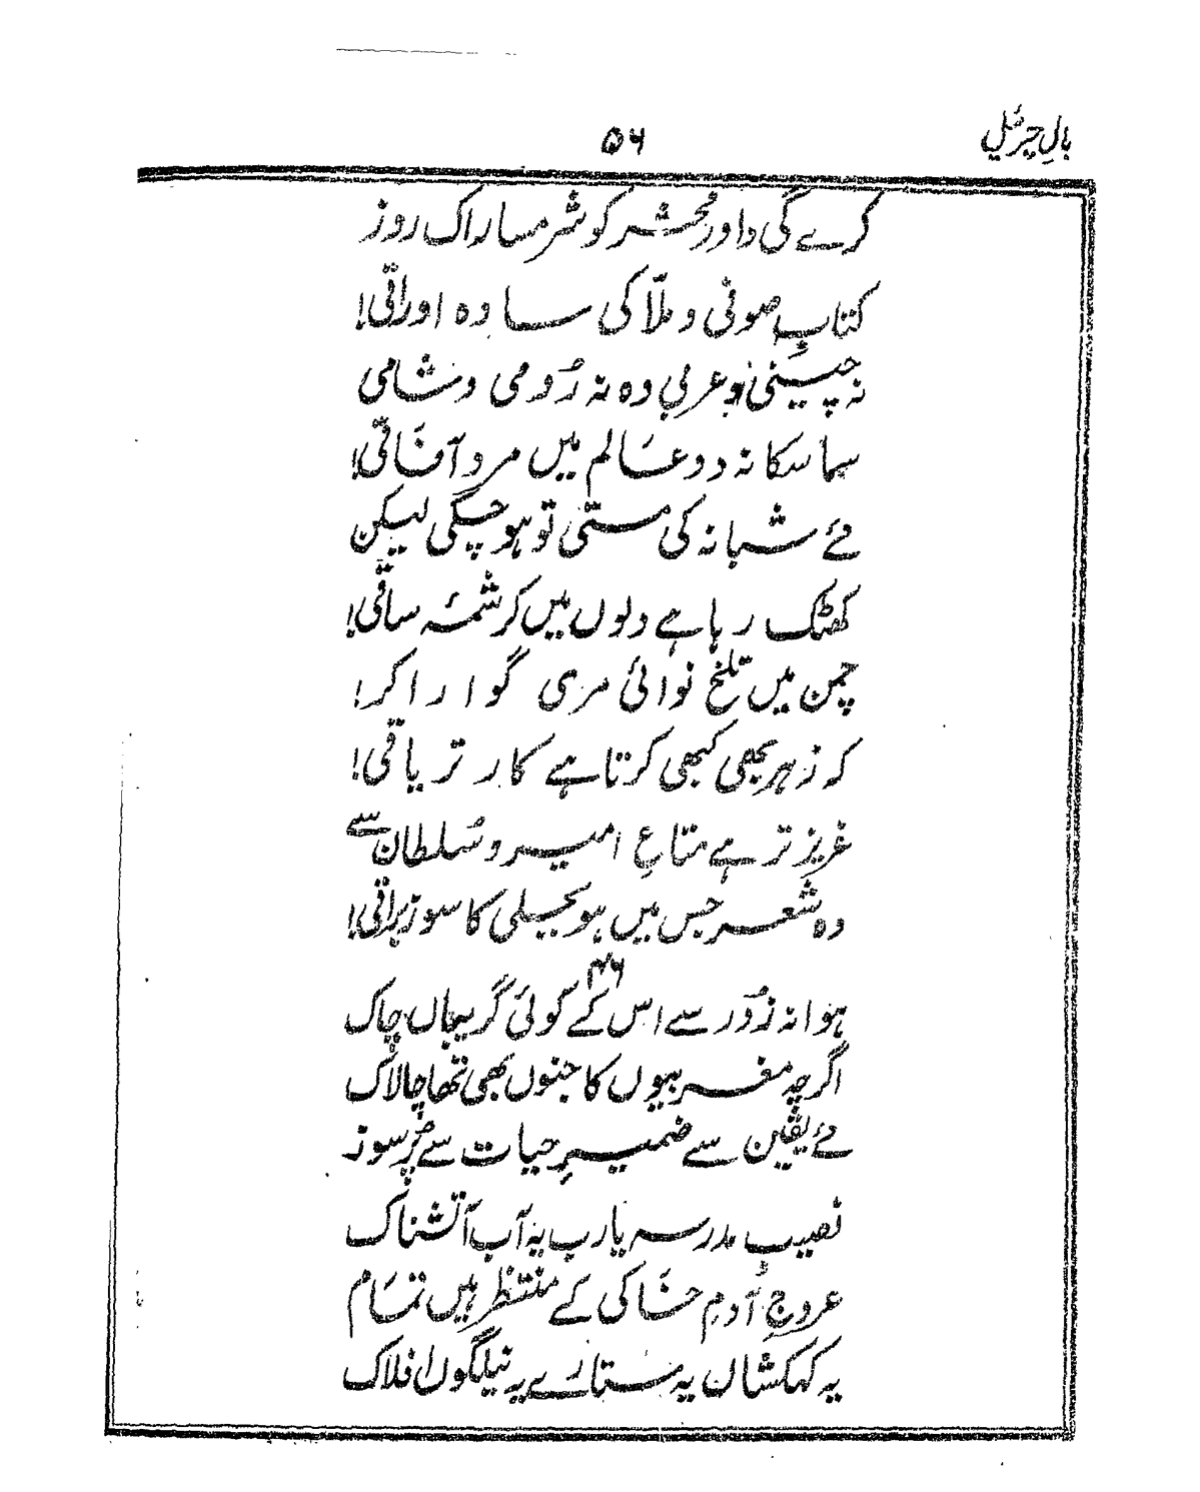 بالِ جبرئیل
۵۶
کرے گی داورِ محشر کو شرمسار اک روز
کتابِ صوفی و ملّا کی سادہ اوراقی!
نہ چینی و عربی وہ نہ رُومی و شامی
سما سکا نہ دو عَالم میں مردِ آفَاقی!
مۓ شبانہ کی مستی تو ہو چکی لیکن
کھٹک رہا ہے دلوں میں کرشمۂ ساقی!
چمن میں تلخ نوائی مری گوارا کر!
کہ زہر بھی کبھی کرتا ہے کار تریاقی!
عزیز تر ہے متاعِ امیر و سُلطان سے
وہ شعر جس میں ہو بجلی کا سوز و براقی!
۴۶
ہوا نہ زور سے اس کے کوئی گریباں چاک
اگرچہ مغربیوں کا جنوں بھی تھا چالاک
مۓ یقین سے ضمیرِ حیات ہے پُرسوز
نصیبِ مدرسہ یارب یہ آبِ آتشناک
عروجِ آدمِ خَاکی کے منتظر ہیں تمَام
یہ کہکشاں یہ ستارے یہ نیلگوں افلاک